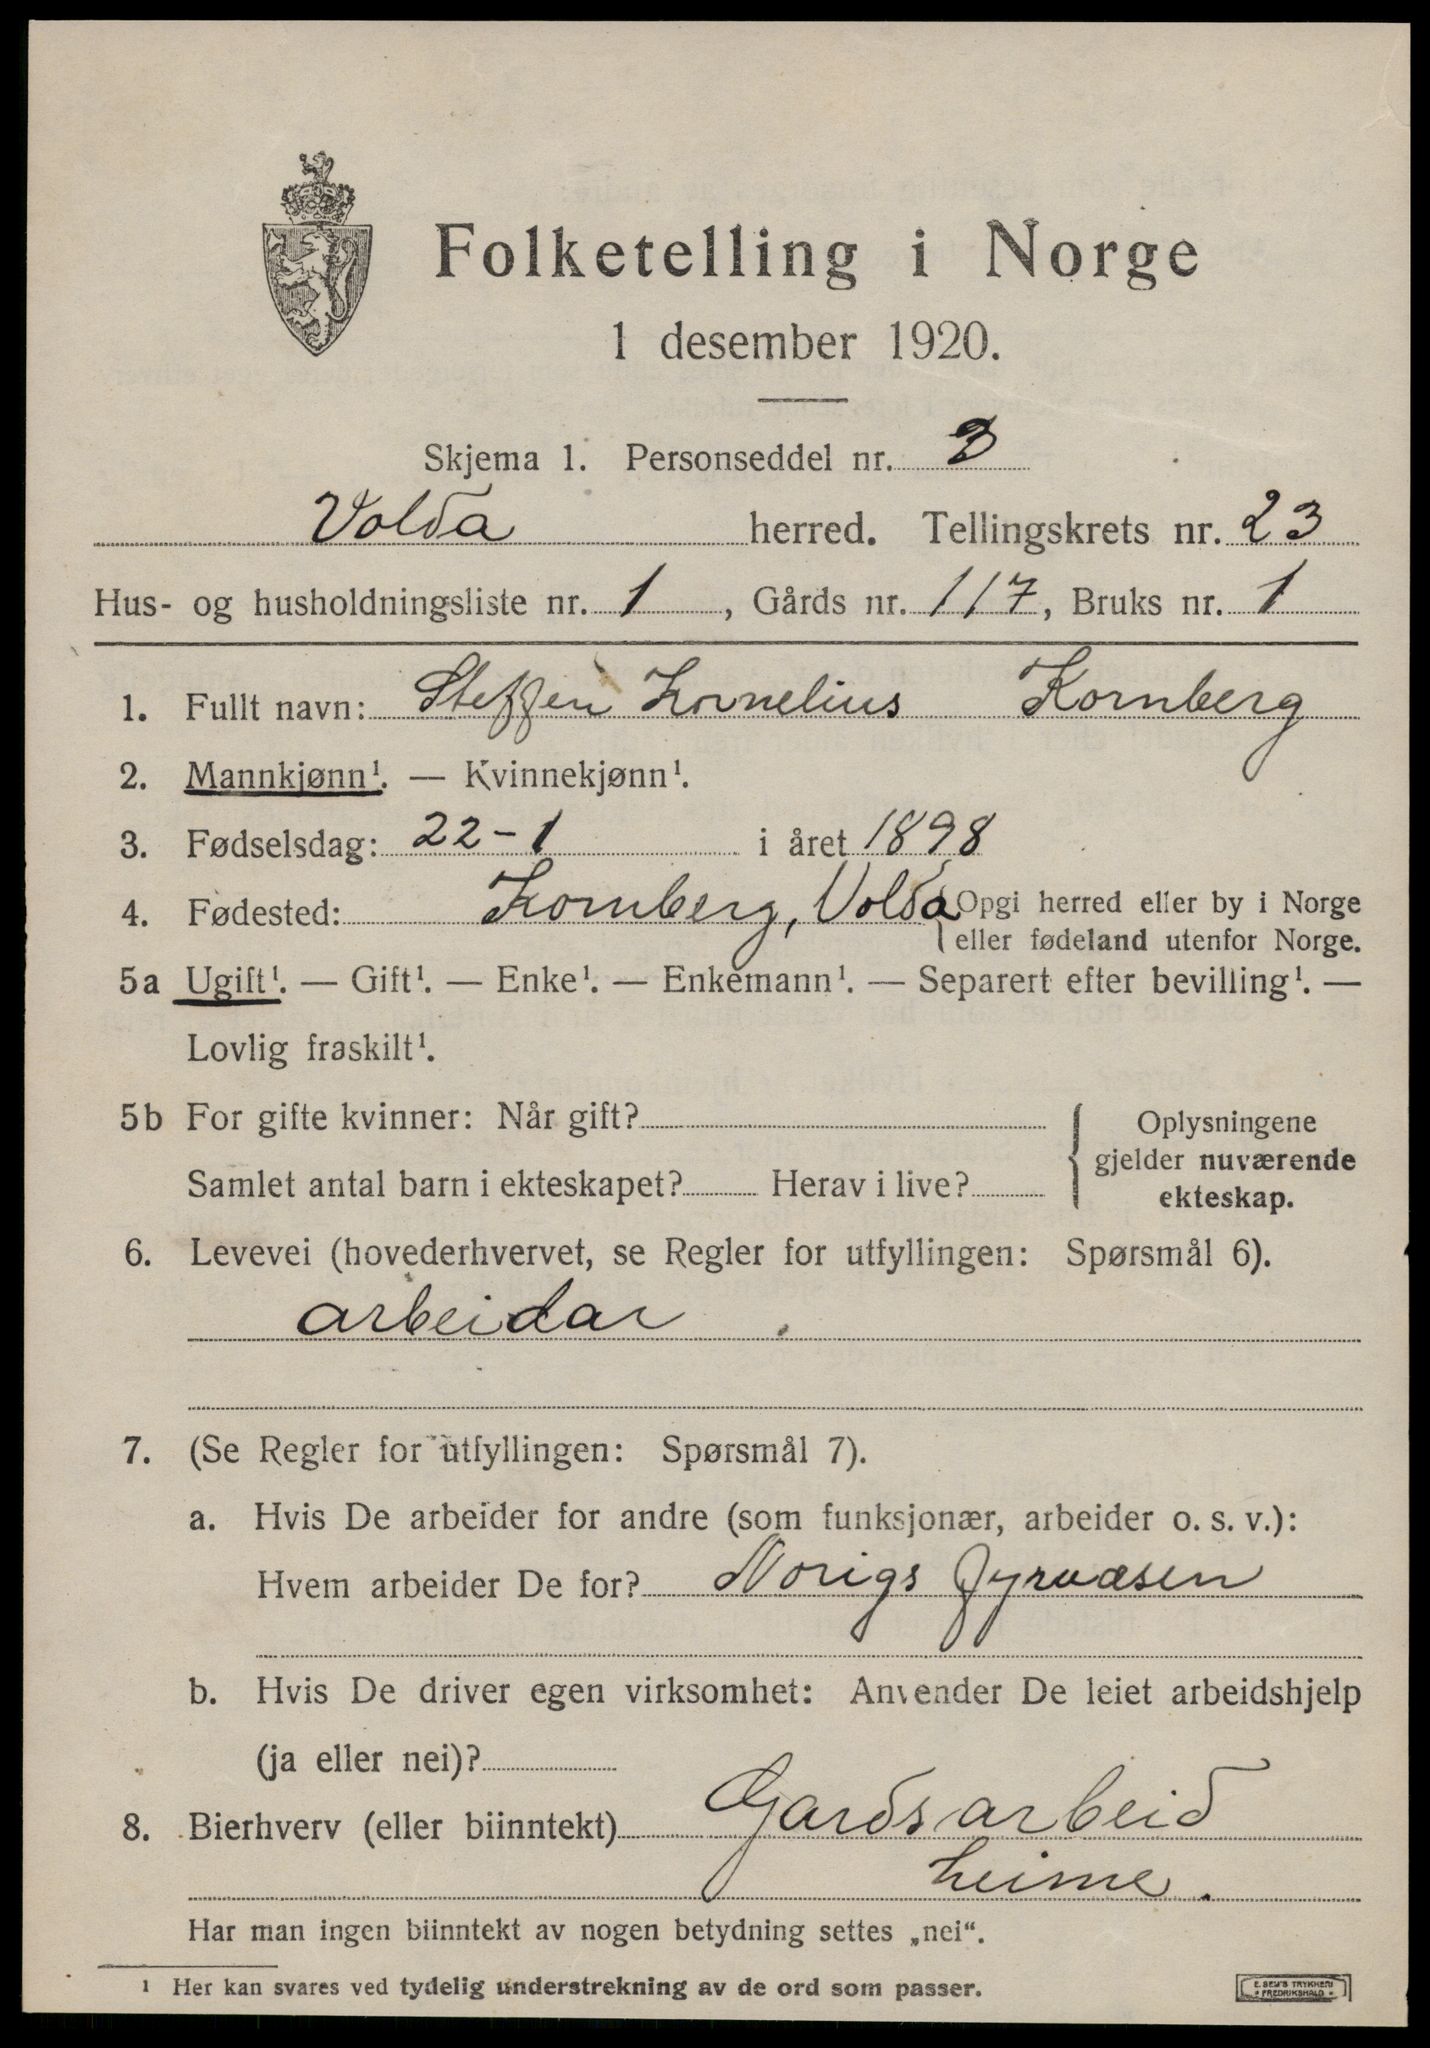 Folketelling i Norge
1 desember 1920.
Skjema 1. Personseddel nr. 3
Volda herred. Tellingskrets nr. 23
Hus- og husholdningsliste nr. 1, Gårds nr. 117, Bruks nr. 1
1. Fullt navn: Steffen Kornelius Kornberg
2. Mannkjønn¹. — Kvinnekjønn¹.
3. Fødselsdag: 22-1 i året 1898
4. Fødested: Kornberg, Volda { Opgi herred eller by i Norge
eller fødeland utenfor Norge.
5a Ugift¹. — Gift¹. — Enke¹. — Enkemann¹. — Separert efter bevilling¹. —
Lovlig fraskilt¹.
5b For gifte kvinner: Når gift?
Samlet antal barn i ekteskapet? Herav i live?
Oplysningene
gjelder nuværende
ekteskap.
6. Levevei (hovederhvervet, se Regler for utfyllingen: Spørsmål 6).
arbeidar
7. (Se Regler for utfyllingen: Spørsmål 7).
a. Hvis De arbeider for andre (som funksjonær, arbeider o. s. v.):
Hvem arbeider De for? Norigs fyrvæsen
b. Hvis De driver egen virksomhet: Anvender De leiet arbeidshjelp
(ja eller nei)?
8. Bierhverv (eller biinntekt) Gardsarbeid
heime.
Har man ingen biinntekt av nogen betydning settes „nei“.
¹ Her kan svares ved tydelig understrekning av de ord som passer.
E. SEM'S TRYKKERI
FREDRIKSHALD